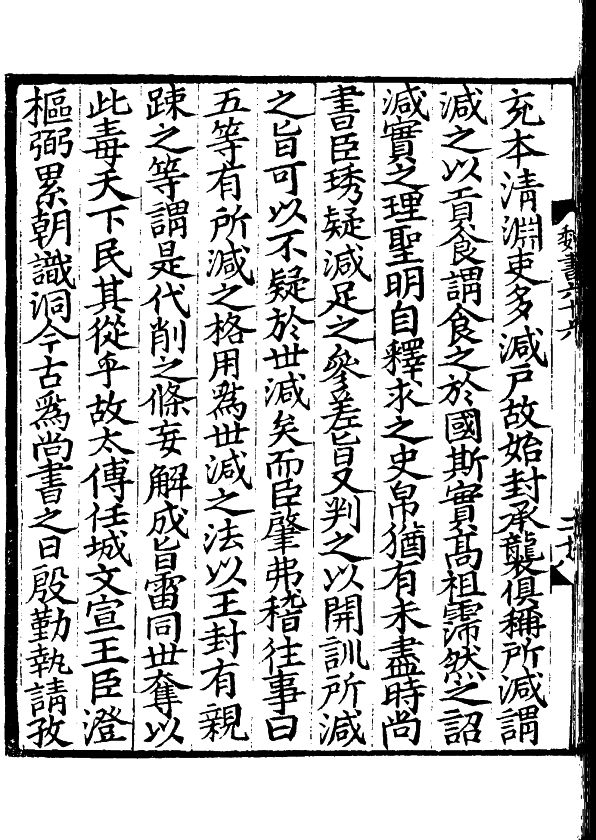 充本清淵吏多減戶故始封承襲俱稱所減謂
減之以貢食謂食之於國斯實高祖霈然之詔
減實之理聖明自釋求之史帛猶有未盡時尚
書臣琇疑減足之參差旨又判之以開訓所減
之旨可以不疑於世減矣而臣肇弗稽往事曰
五等有所減之格用爲世減之法以王封有親
踈之等謂是代削之條妄解成旨雷同世奪以
此毒天下民其從乎故太傅任城文宣王臣澄
樞弼累朝識洞今古爲尚書之日殷勤執請孜